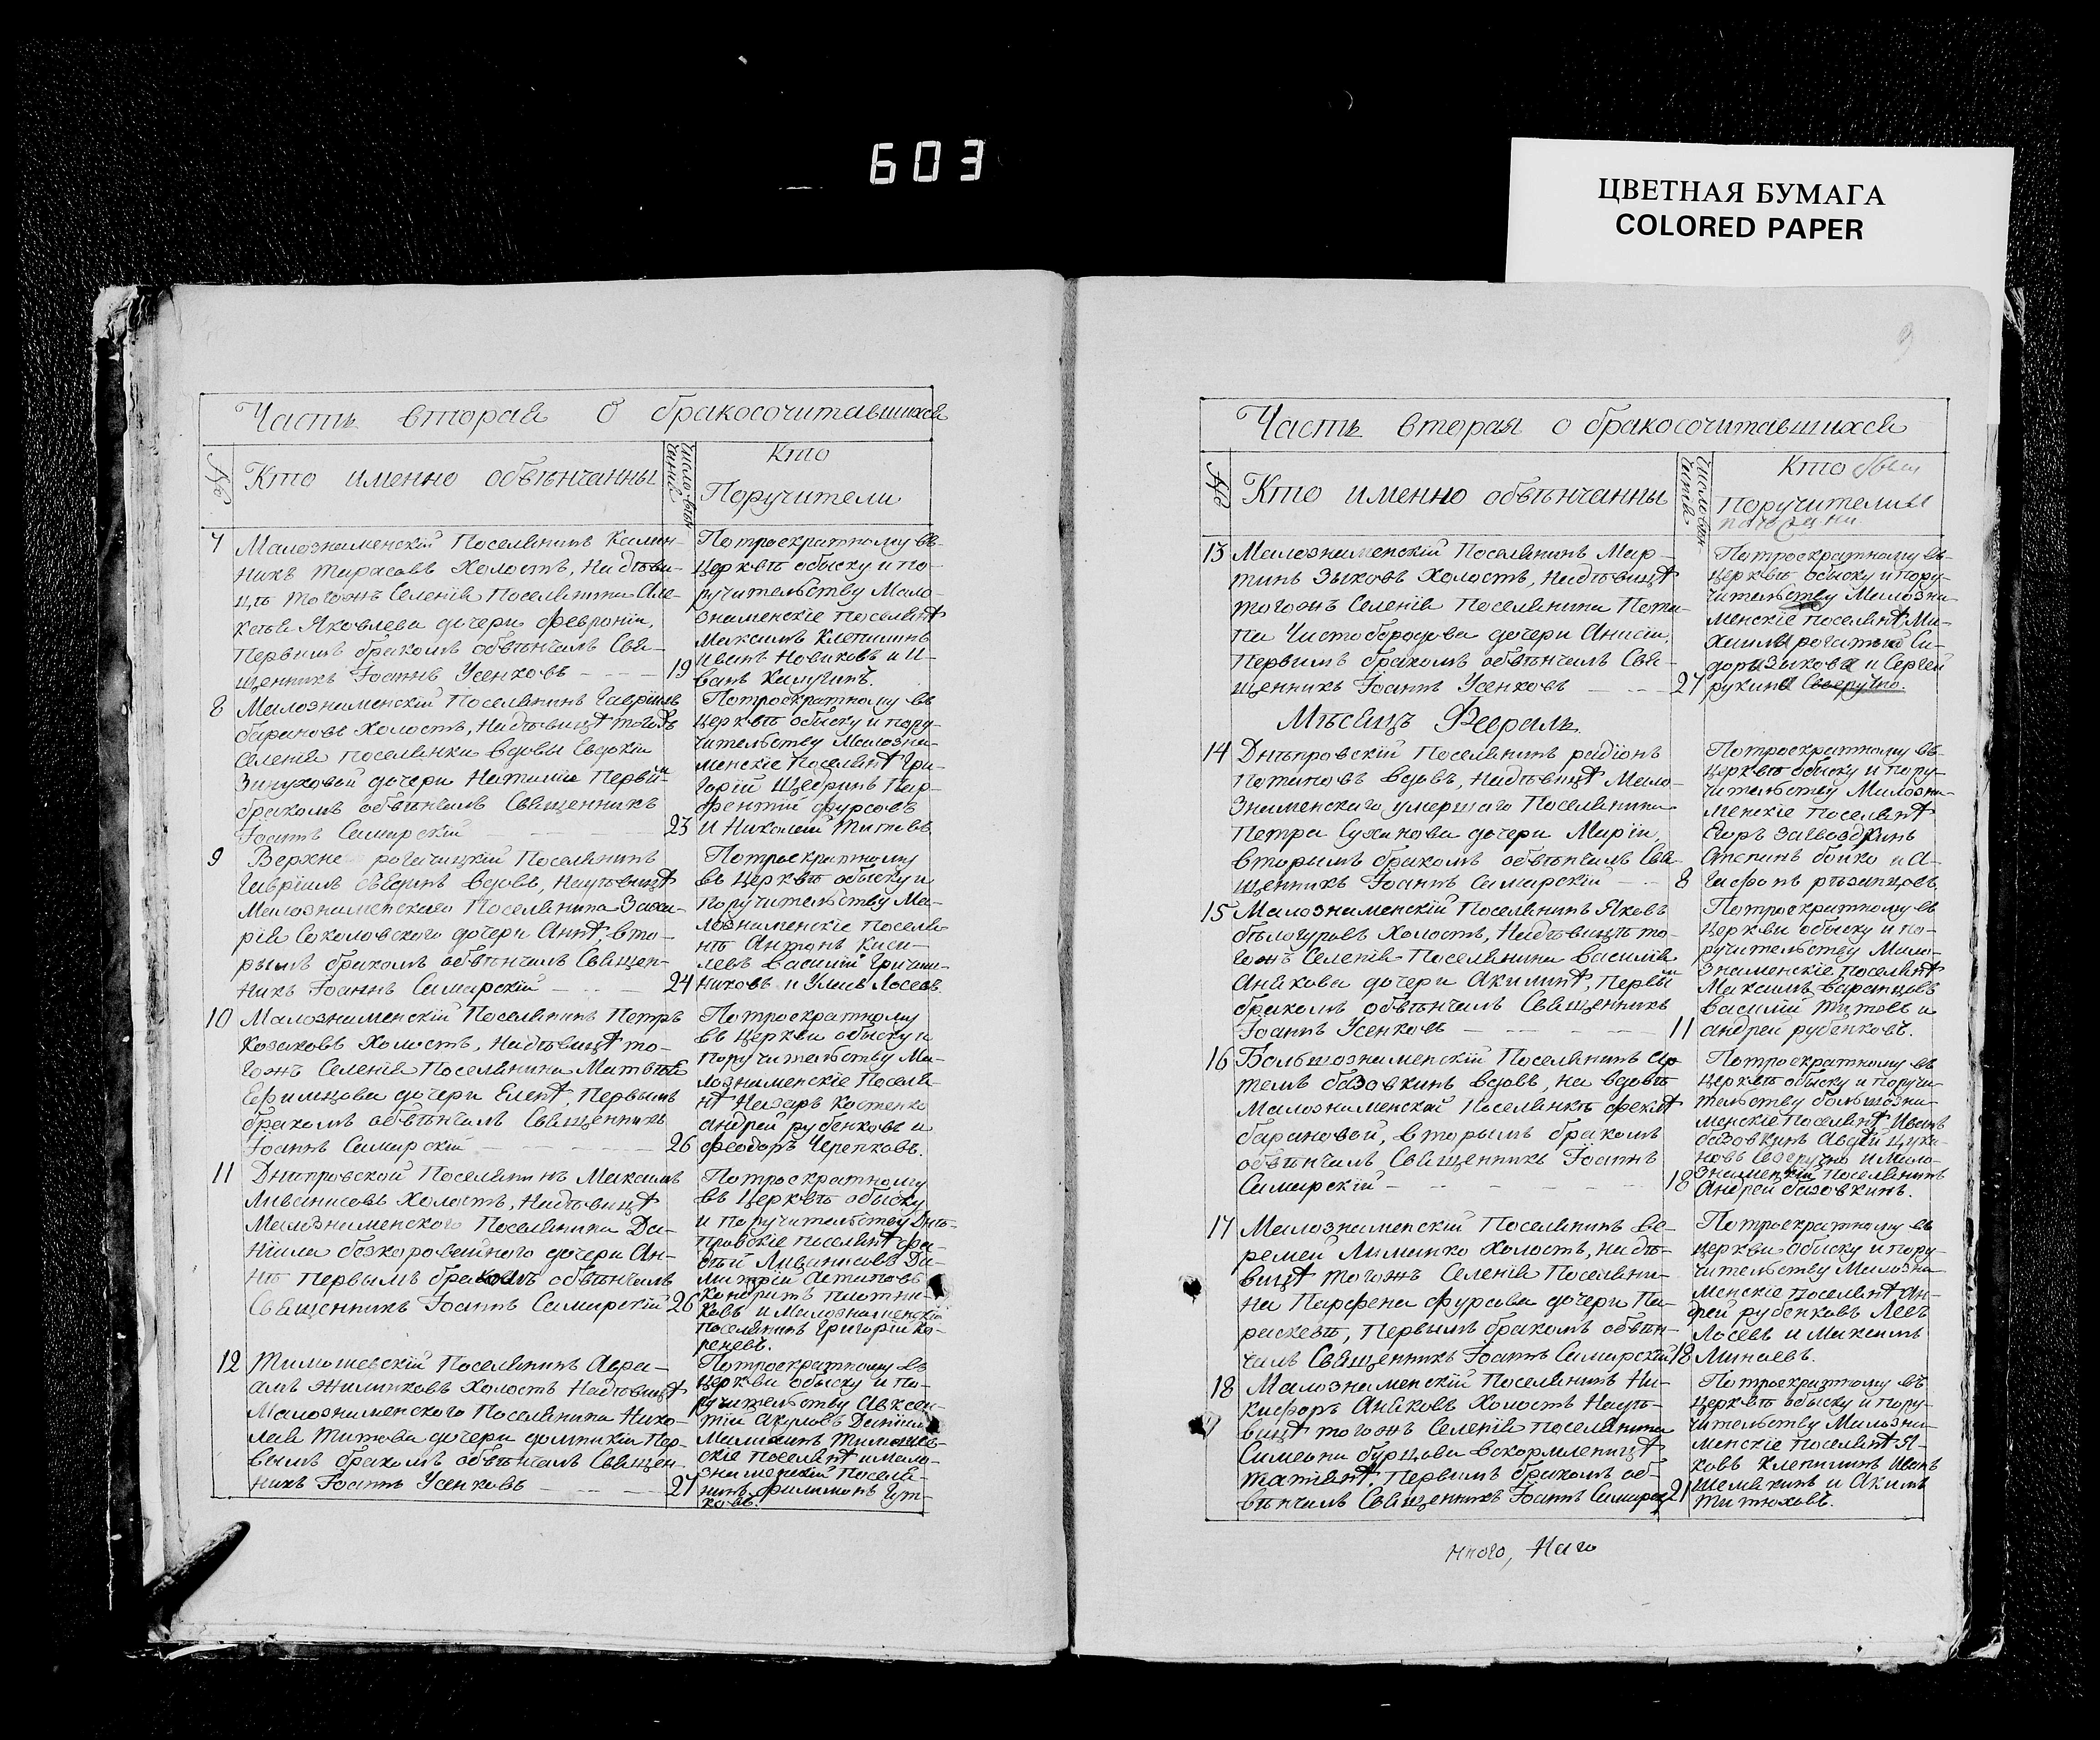 603
ЦВЕТНАЯ БУМАГА
COLORED PAPER
Часть вторая о бракосочитавшихся
№
Кто именно обвѣнчанны
Число вѣн-
чаній
Кто
Поручители
7
Малознаменскій Поселянинъ Калин-
никъ Тарасовъ Холостъ, На дѣви-
цѣ тогожъ Селенія Поселянина Але-
ксѣя Яковлева дочери Февроніи,
Первымъ бракомъ обвѣнчалъ Свя-
щенникъ Іоаннъ Усенковъ
19
Потроекратному въ
Церквѣ обыску и по-
ручительству Мало-
знаменскіе поселянѣ
Максимъ Клепининъ
Иванъ Новиковъ и И-
ванъ Калугинъ.
8
Малознаменскій Поселянинъ Гавріилъ
барановъ Холостъ, На дѣвицѣ тогожъ
Селенія поселянки вдовы Евдокіи
Зинуховой дочери Наталіи Первым
бракомъ обвѣнчалъ Священникъ
Іоаннъ Самарскій
23
Потроекратному въ
Церквѣ обыску и пору-
чительству Малозна-
менскіе Поселянѣ Гри-
горій Щедринъ Пар-
фентій фурсовъ
И Николай Титовъ
9
Верхне рогачицкій Поселянинъ
Гавріилъ вдовъ, На дѣвицѣ
Малознаменскаго Поселянина Заха-
рія Соколовского дочери Аннѣ, вто-
рымъ бракомъ обвѣнчалъ Священ-
никъ Іоаннъ Самарскій
24
Потроекратному
въ Церквѣ обыску и
поручительству Ма-
лознаменскіе поселя-
нѣ Антонъ Кисе-
левъ Василій Гричани-
никовъ и Улисъ Лосевъ.
10
Малознаменскій Поселянинъ Петръ
Козаковъ Холостъ, На дѣвицѣ то-
гожъ Селенія Поселянина Матвѣя
Ефимцова дочери Еленѣ, Первымъ
бракомъ обвѣнчалъ Священникъ
Іоаннъ Самарскій
26
Потроекратному
въ Церкви обыску и
поручительству Ма-
лознаменскіе Поселя-
нѣ Назаръ Костенко
андрей рубенковъ и
Феодоръ Черепковъ.
11
Днѣпровской Поселянинъ Максимъ
Ливанисовъ Холостъ, На дѣвицѣ
Малознаменского Поселянина Да-
ніила безкоровейного дочери Ан-
нѣ Первымъ бракомъ обвѣнчалъ
Священникъ Іоаннъ Самарскій
26
Потроекратному
въ Церквѣ обыску
и поручительству Днѣ-
провскіе поселянѣ Фа-
дѣй Ливанисовъ Ди-
митрій Астаповъ
Кондратъ плотни-
ковъ и Малознаменскій
поселянинъ Григорій Ко-
реневъ.
12
Тимошевскій Поселянинъ Авра-
амъ Жилинковъ Холостъ На дѣвицѣ
Малознаменского Поселянина Нико-
лая Титова дочери домникіи Пер-
вымъ бракомъ обвѣнчалъ Священ-
никъ Іоаннъ Усенковъ
27
Потроекратному въ
Церкви обыску и по-
ручительству Авксен-
тій Акуловъ Даніилъ
Малихинъ Тимошев-
скіе поселянѣ и мало-
знаменскій Поселя-
нинъ филимонъ Гут-
ковъ.
Часть вторая о бракосочитавшихся
№
Кто именно обвѣнчанны
Число вѣн-
чаній
Кто были
Поручители
13
Малознаменскій Поселянинъ Мар-
тинъ Зыковъ Холостъ, На дѣвицѣ
тогожъ Селенія Поселянина Пота-
па Чистобородова дочери Анисіи,
Первымъ бракомъ обвѣнчалъ Свя-
щенникъ Іоаннъ Усенковъ
27
Потроекратному въ
Церквѣ обыску и пору-
чительству Малозна-
менскіе поселянѣ Ми-
хаилъ рогатько Си-
доръ Зыковъ и Сергей
рукина Своеручно.
Мѣсяцъ Февраль
14
Днѣпровскій Поселянинъ радіонъ
Потаповъ вдовъ, На дѣвицѣ Мало-
знаменскаго умершаго Поселянина
Петра Суханова дочери Маріи,
вторымъ бракомъ обвѣнчалъ Свя-
щенникъ Іоаннъ Самарскій
8
Потроекратному въ
Церквѣ обыску и пору-
чительству Малозна-
менскіе поселянѣ
Егоръ Загвоздкинъ
Аггеинъ бойко и А-
гафонъ рѣзанцовъ,
15
Малознаменскій Поселянинъ Яковъ
бѣлогуровъ Холостъ, На дѣвицѣ то-
гожъ Селенія Поселянина Василія
Аникова дочери Акилинѣ, Первым
бракомъ обвѣнчалъ Священникъ
Іоаннъ Усенковъ
11
Потроекратному въ
Церкви обыску и по-
ручительству Мало-
знаменскіе поселянѣ
Максимъ варанцовъ
василій титовъ и
андрей рубенковъ.
16
Большознаменскій Поселянинъ Ар-
темъ базовкинъ вдовъ, на вдовѣ
Малознаменской Поселянкѣ феклѣ
барановой, вторымъ бракомъ
обвѣнчалъ Священникъ Іоаннъ
Самарскій
18
Потроекратному въ
Церквѣ обыску и поручи-
тельству большозна-
менскіе Поселянѣ Иванъ
базовкинъ Авдѣй цука-
новъ Своеручно и Мало-
знаменскій Поселянинъ
Андрей базовкинъ.
17
Малознаменскій Поселянинъ Ве-
ремей Лиманко Холостъ, на дѣ-
вицѣ тогожъ Селенія Поселяни-
на Парфена фурсова дочери Па-
раскевѣ, Первымъ бракомъ обвѣн-
чалъ Священникъ Іоаннъ Самарскій
18
Потроекратному въ
Церкви обыску и пору-
чительству Малозна-
менскіе поселянѣ Ан-
дрей рубенковъ Левъ
Лосевъ и Максимъ
Минаевъ.
18
Малознаменскій Поселянинъ Ни-
кифоръ Аниковъ Холостъ На дѣ-
вицѣ тогожъ Селенія поселянина
Симеона бурцова вскормленицѣ
татіанѣ, Первымъ бракомъ об-
вѣнчалъ Священникъ Іоаннъ Самарск
21
Потроекратному въ
Церквѣ обыску и пору-
чительству Малозна-
менскіе поселянѣ Я-
ковъ Клепининъ Иванъ
шелякинъ и Акимъ
титюховъ.